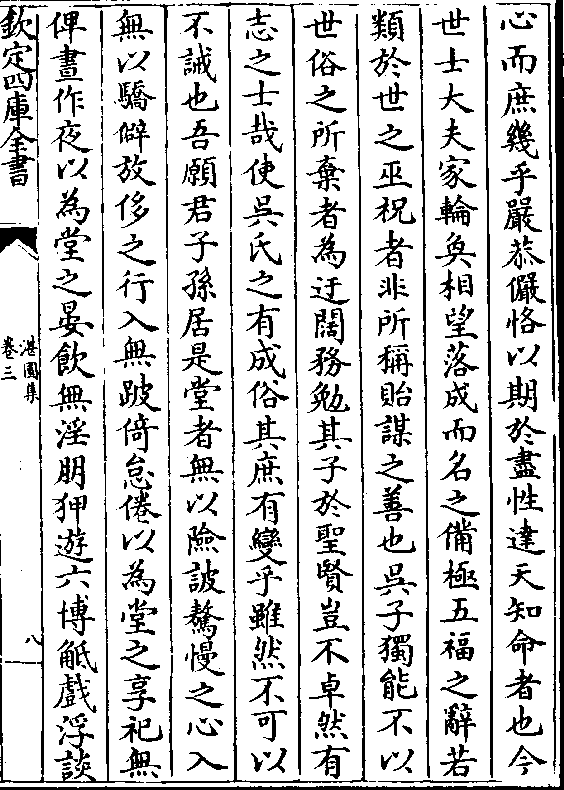 心而庶幾乎嚴恭儼恪以期於盡性達天知命者也今
世士大夫家輪奐相望落成而名之備極五福之辭若
類於世之巫祝者非所稱貽謀之善也吳子獨能不以
世俗之所棄者為迂闊務勉其子於聖賢豈不卓然有
志之士哉使吳氏之有成俗其庶有變乎雖然不可以
不誡也吾願君子孫居是堂者無以險詖驁慢之心入
無以驕僻放侈之行入無跛倚怠倦以為堂之享祀無
俾晝作夜以為堂之晏飲無淫朋狎遊六博觝戲浮談
欽定四庫全書
湛園集
卷三
八